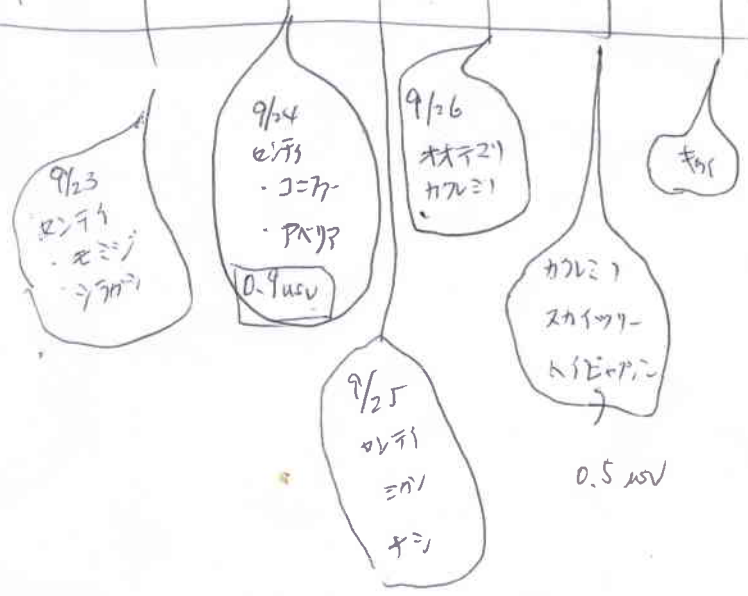 9/23
センテイ
・モミジ
・シラカシ
9/24
センテイ
・コニファー
・アベリア
0.9usv
9/25
センテイ
ミカン
ナシ
9/26
オオデマリ
カクレミノ
カクレミノ
スカイツリー
0.5 usv